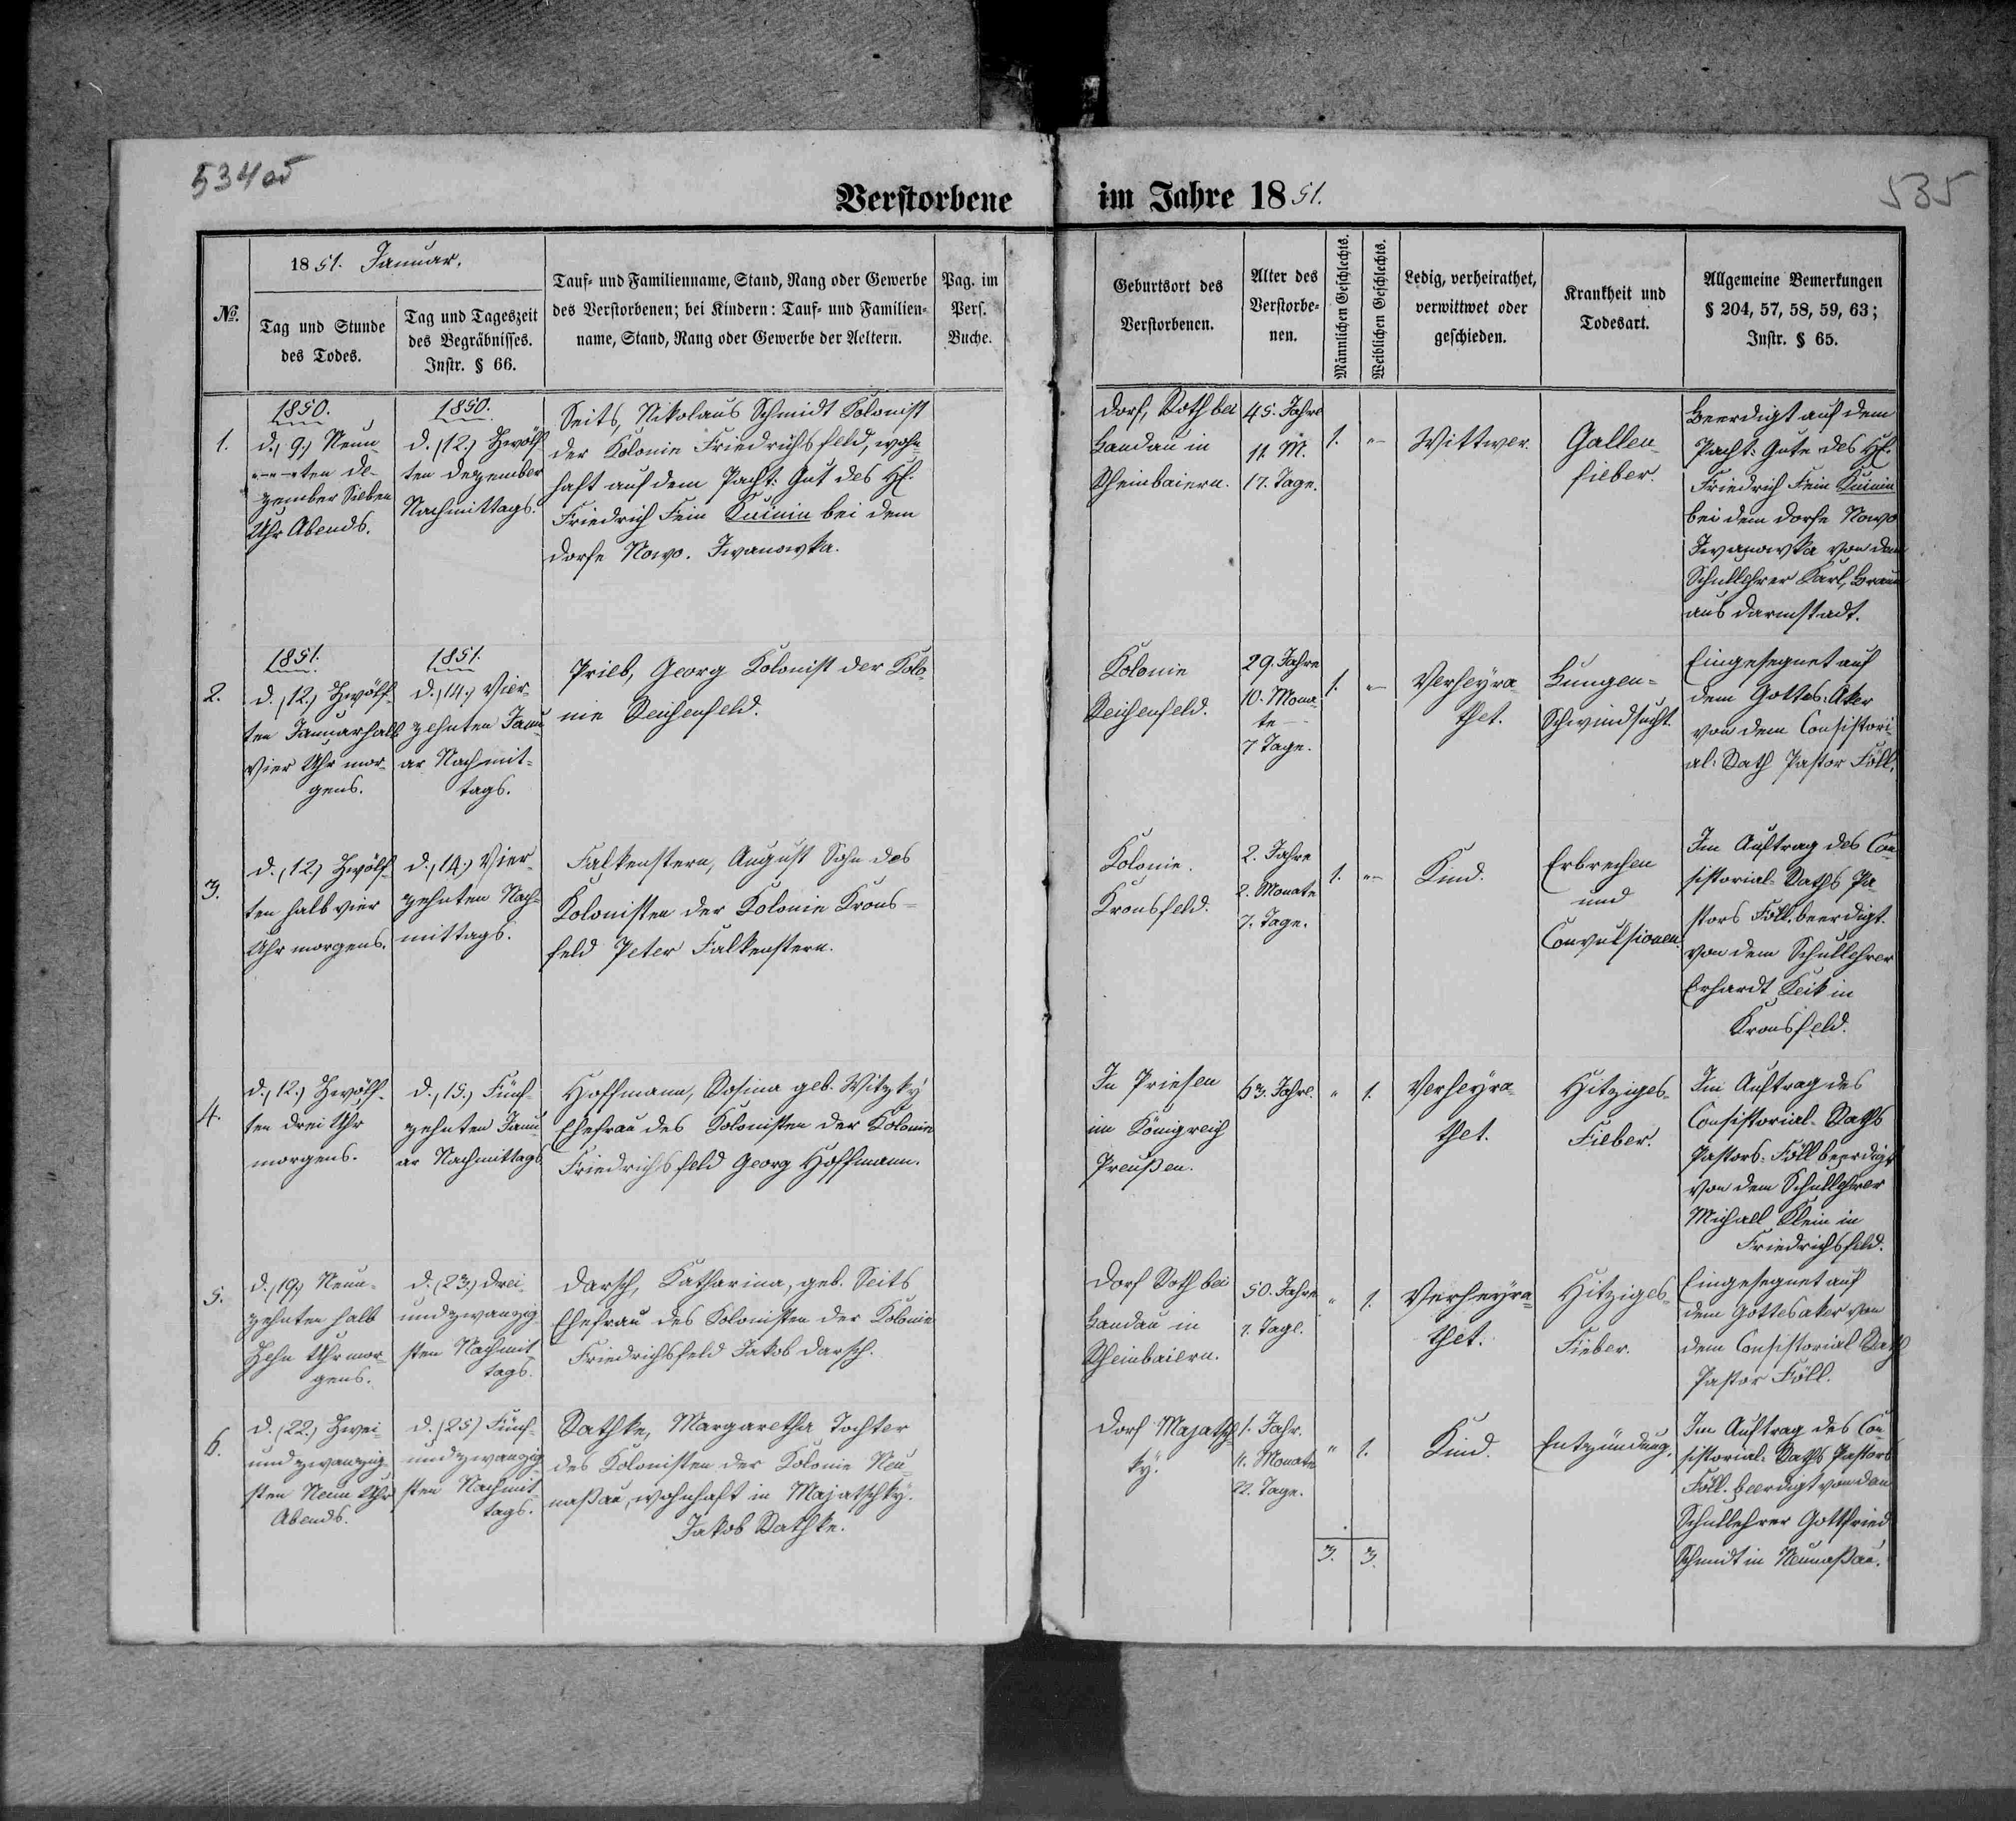 534 об
535
Verstorbene im Jahre 1851.
№.
1851. Januar.
Tag und Stunde
des Todes.
Tag und Tageszeit
des Begräbnisses.
Instr. § 66.
Tauf- und Familienname, Stand, Rang oder Gewerbe
des Verstorbenen; bei Kindern: Tauf- und Familien-
name, Stand, Rang oder Gewerbe der Aeltern.
Pag. im
Pers.
Buche.
Geburtsort des
Verstorbenen.
Alter des
Verstorbe-
nen.
Männlichen Geschlechts.
Weiblichen Geschlechts.
Ledig, verheirathet,
verwittwet oder
geschieden.
Krankheit und
Todesart.
Allgemeine Bemerkungen
§ 204, 57, 58, 59, 63;
Instr. § 65.
1.
1850.
d. (9.) Neun-
ten De-
zember Sieben
Uhr Abends.
1850.
d. (12.) Zwölf-
ten Dezember
Nachmittags.
Seits, Nikolaus Schmidt Kolonist
der Kolonie Friedrichsfeld, wohn-
haft auf dem Pacht: Gut des H.
Friedrich Fein Kuinin bei dem
Dorfe Nowo. Iwanowka.
Dorf, Roth bei
Landau in
Rheinbaiern.
45. Jahre
11. M.
17. Tage.
1.
"
Wittwer.
Gallen-
fieber.
Beerdigt auf dem
Pacht: Gute des H.
Friedrich Fein Kuinin
bei dem Dorfe Nowo
Iwanowka von dem
Schullehrer Karl, Braun
aus Darmstadt.
2.
1851.
d. (12.) Zwölf-
ten Januar halb
Vier Uhr mor-
gens.
1851.
d. (14.) Vier-
zehnten Janu-
ar Nachmit-
tags.
Prieb, Georg Kolonist der Kolo-
nie Reichenfeld.
Kolonie
Reichenfeld.
29. Jahre
10. Mona-
te
7 Tage.
1.
"
Verheyra-
thet.
Lungen-
Schwindsucht.
Eingesegnet auf
dem Gottes: Aker
von dem Consistori-
al: Rath Pastor Föll.
3.
d. (12.) Zwölf-
ten halb vier
Uhr morgens.
d. (14.) Vier-
zehnten Nach-
mittags.
Falkenstern, August Sohn des
Kolonisten der Kolonie Krons-
feld Peter Falkenstern.
Kolonie.
Kronsfeld.
2. Jahre
2. Monate
7. Tage.
1.
"
Kind.
Erbrechen
und
Convulsionen.
Im Auftrag des Con-
sistorial-Raths Pa-
stors Föll. beerdigt
von dem Schullehrer
Erhardt Keik in
Kronsfeld.
4.
d. (12.) Zwölf-
ten drei Uhr
morgens.
d. (15.) Fünf-
zehnten Janu-
ar Nachmittags
Hoffmann, Rosina geb. Witzky
Ehefrau des Kolonisten der Kolonie
Friedrichsfeld Georg Hoffmann.
In Priesen
im Königreich
Preußen.
63. Jahre.
"
1.
Verheyra-
thet.
Hitziges-
Fieber.
Im Auftrag des
Consistorial-Raths
Pastors: Föll beerdigt
von dem Schullehrer
Michael Klein in
Friedrichsfeld.
5.
d. (19.) Neun-
zehnten halb
Zehn Uhr mor-
gens.
d. (23.) Drei-
undzwanzig-
sten Nachmit-
tags.
Darsch, Katharina, geb. Seits
Ehefrau des Kolonisten der Kolonie
Friedrichsfeld Jakob Darsch.
Dorf Roth bei
Landau in
Rheinbaiern.
50. Jahre
7. Tage.
"
1.
Verheyra-
thet.
Hitziges-
Fieber.
Eingesegnet auf
dem Gottesaker von
dem Consistorial Rath
Pastor Föll.
6.
d. (22.) Zwei-
undzwanzig-
sten Neun Uhr
Abends.
d. (25) Fünf-
undzwanzig-
sten Nachmit-
tags.
Rathke, Margaretha Tochter
des Kolonisten der Kolonie Neu-
naßau, wohnhaft in Majatschky.
Jakob Rathke.
Dorf Majatsch-
ky.
1. Jahr.
11. Monate
22. Tage.
"
1.
Kind.
Entzündung.
Im Auftrag des Con-
sistorial: Raths Pastors
Föll. beerdigt von dem
Schullehrer Gottfried
Schmidt in Neunaßau.
3.
3.